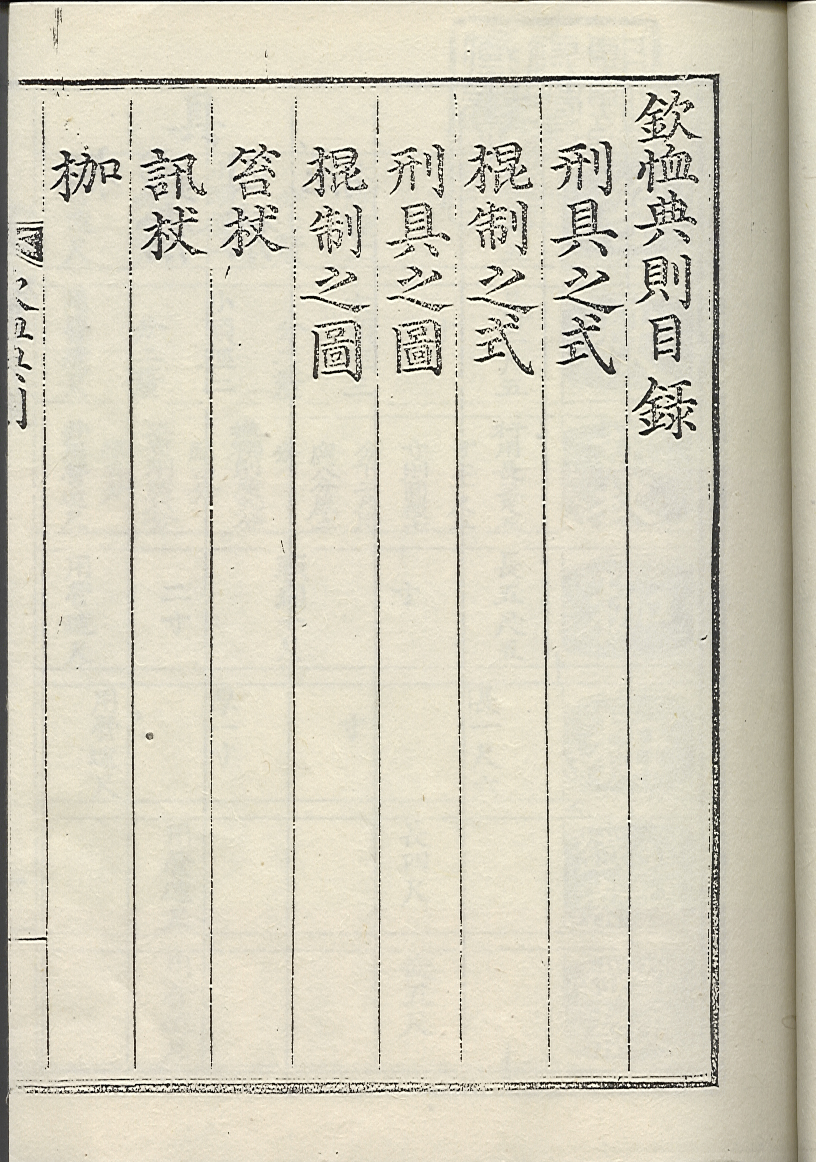 欽恤典則目録
刑具之式
棍制之式
刑具之圖
棍制之圖
笞杖
訊杖
枷